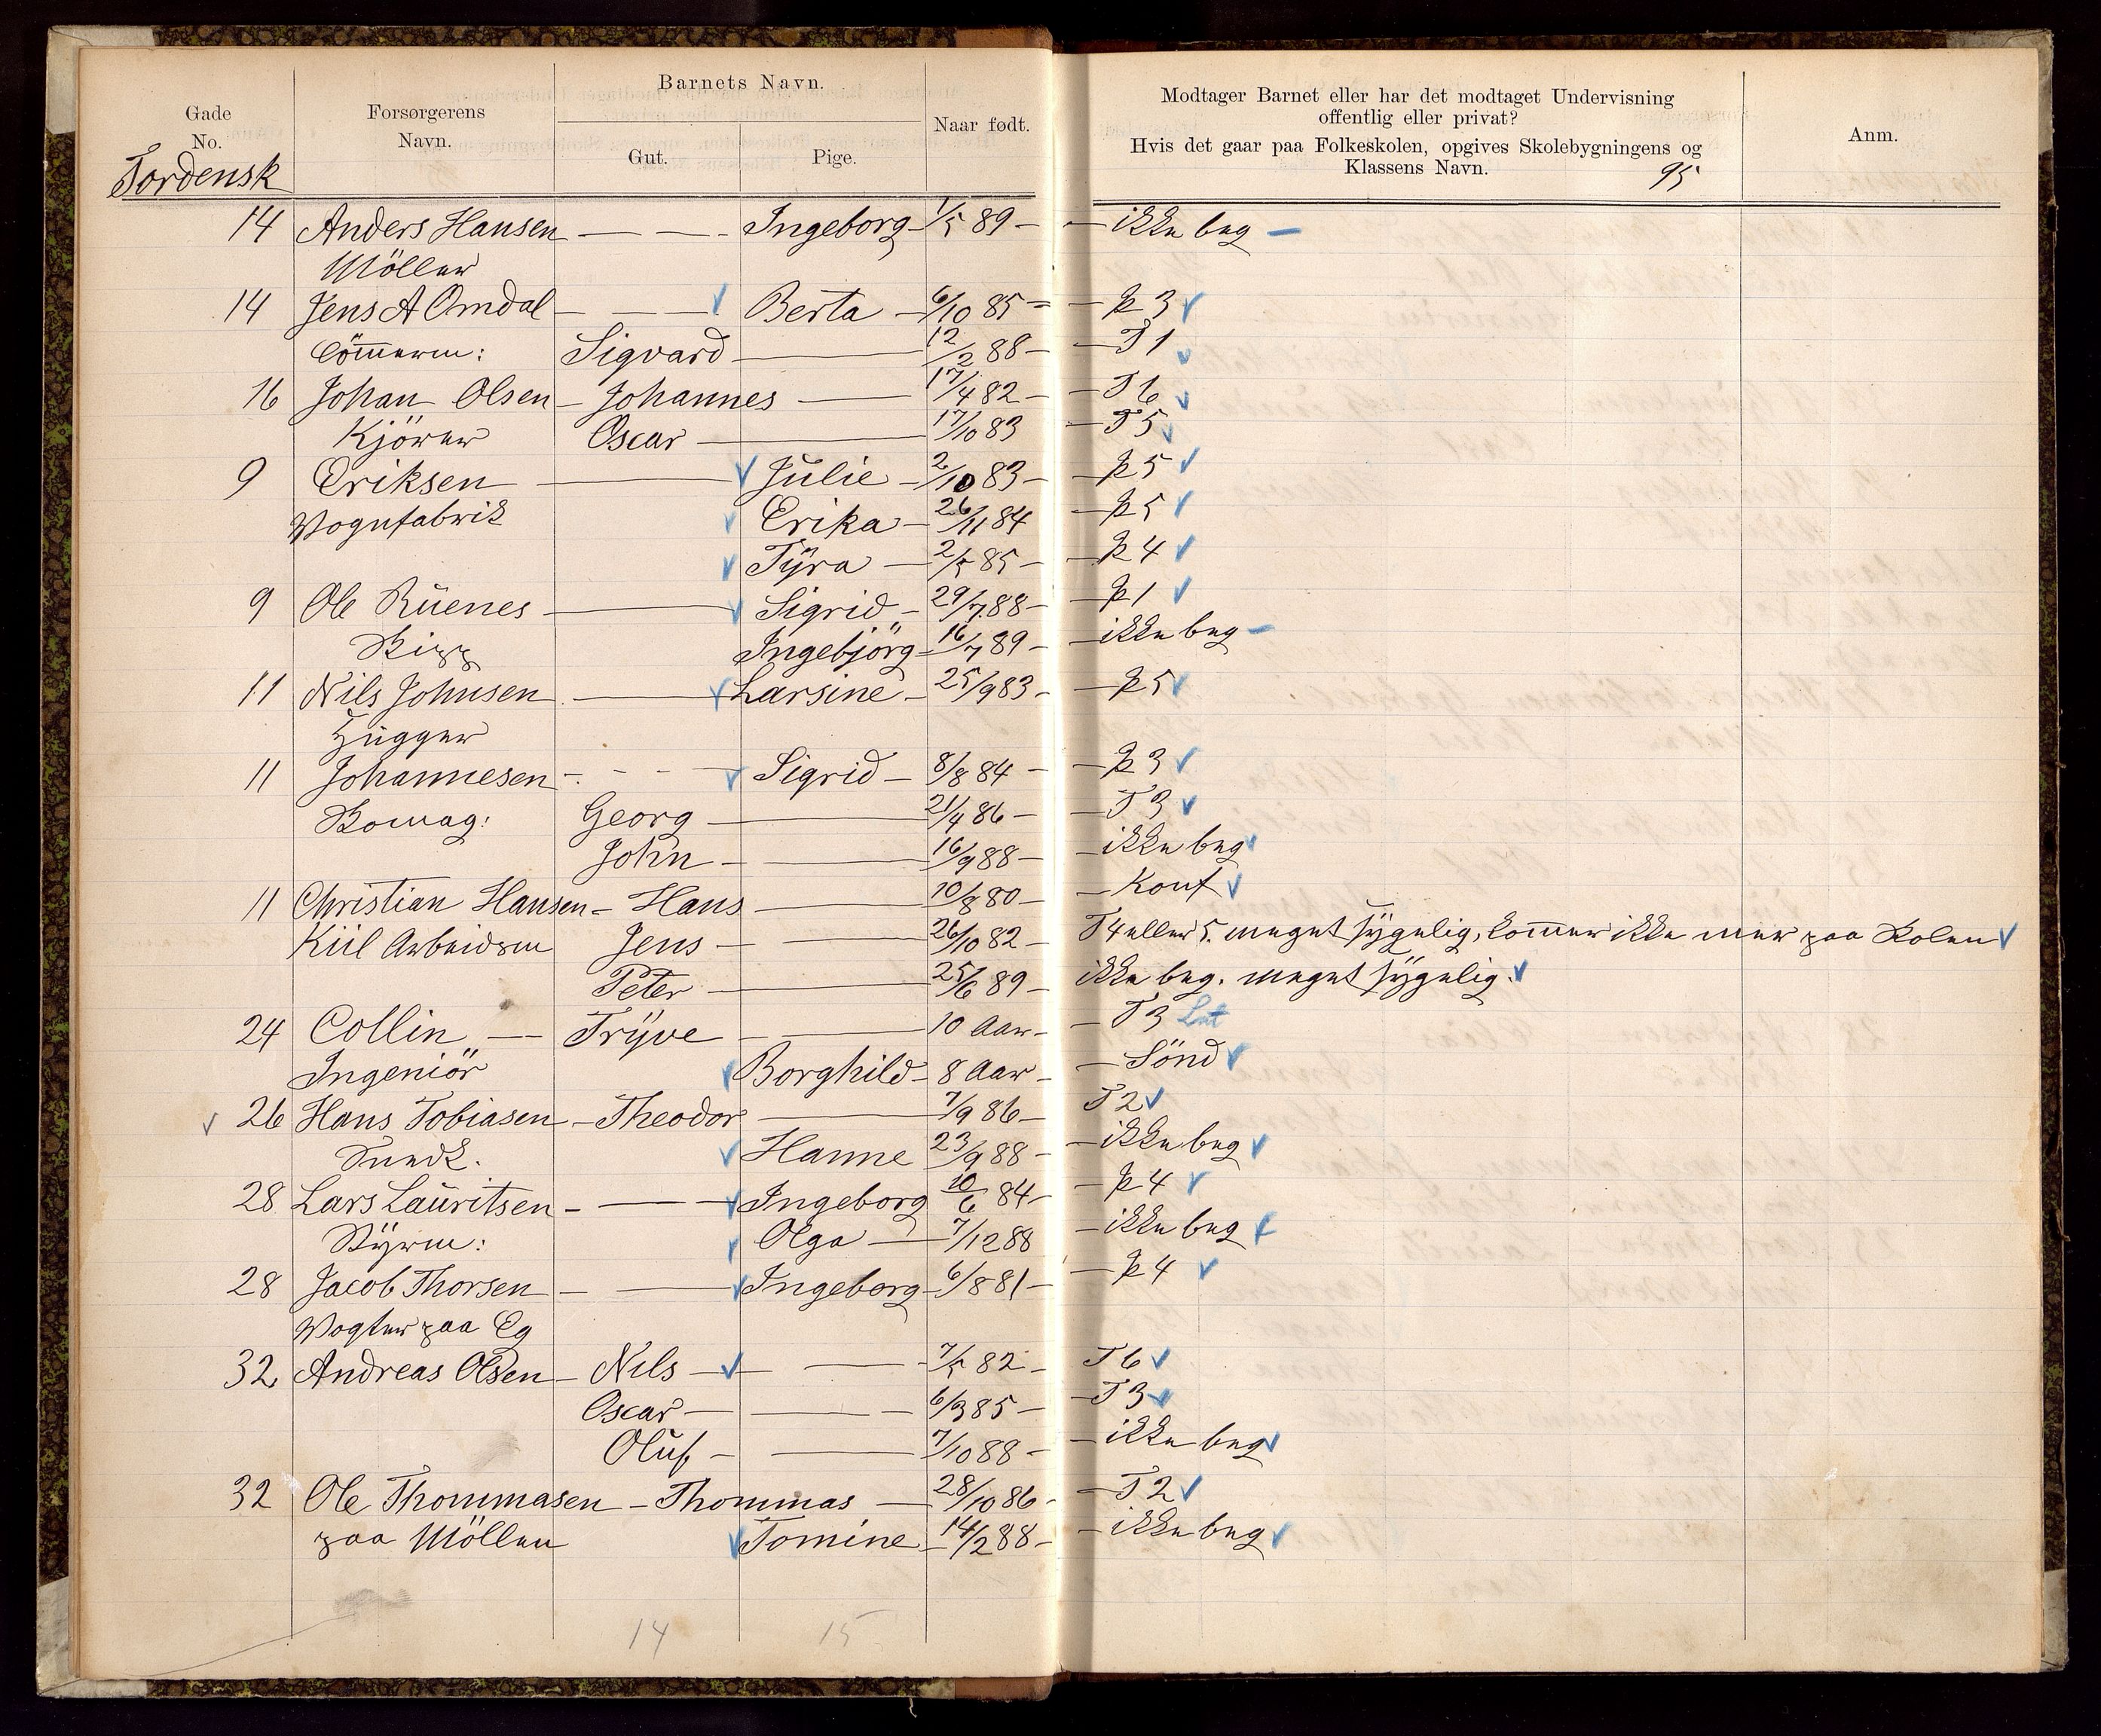 Barnets Navn.
Gade
No.
Forsørgerens
Navn.
Gut.
Pige.
Naar født.
Modtager Barnet eller har det modtaget Undervisning
offentlig eller privat?
Hvis det gaar paa Folkeskolen, opgives Skolebygningens og
Klassens Navn.
95
Anm.
Tordensk
14 Anders Hansen — — - Ingeborg - 1/5 89 - — ikke beg —
Möller
14 Jens A Omdal - — — Berta - 6/10 85 - — P 3
Tömmerm: Sigvard — 12/2 88 - — T 1
16 Johan Olsen - Johannes — 17/4 82 - — T 6
Kjörer Oscar — 17/10 83 — T 5
9 Eriksen — Julie - 2/10 83 - — P 5
Vognfabrik Erika - 26/11 84 — P 5
Tyra — 2/5 85 - — P 4
9 Ole Ruenes — Sigrid - 29/7 88 - — P 1
Ingebjörg - 16/7 89 - — ikke beg —
11 Nils Johnsen — Larsine - 25/9 83 - — P 5
Hugger
11 Johannesen - - - — Sigrid - 8/8 84 - — P 3
Georg — 21/4 86 - — T 3
John - — 16/9 88 - — ikke beg
11 Christian Hansen - Hans — 10/8 80 - — Konf
Kiil Arbeidsm Jens - — 26/10 82 - T 4 eller 5. meget sygelig, kommer ikke mer paa Skolen
Peter — 25/6 89 - ikke beg. meget sygelig.
24 Collin — Tryve — 10 Aar - — T 3
Ingeniör Borghild - 8 Aar - — Sönd
26 Hans Tobiasen - Theodor — 7/9 86 - T 2
Hanne 23/9 88 - — ikke beg
28 Lars Lauritsen - — Ingeborg 10/6 84 - — P 4
Styrm: Olga — 7/12 88 — ikke beg
28 Jacob Thorsen - — Ingeborg - 6/8 81 - — P 4
Vogter paa Eg
32 Andreas Olsen - Nils — — 7/5 82 - T 6
Oscar — — 6/3 85 - — T 3
Oluf - — 7/10 88 - — ikke beg
32 Ole Thommasen - Thommas — 28/10 86 - — T 2
paa Möllen Tomine - 14/2 88 - — ikke beg
14 15